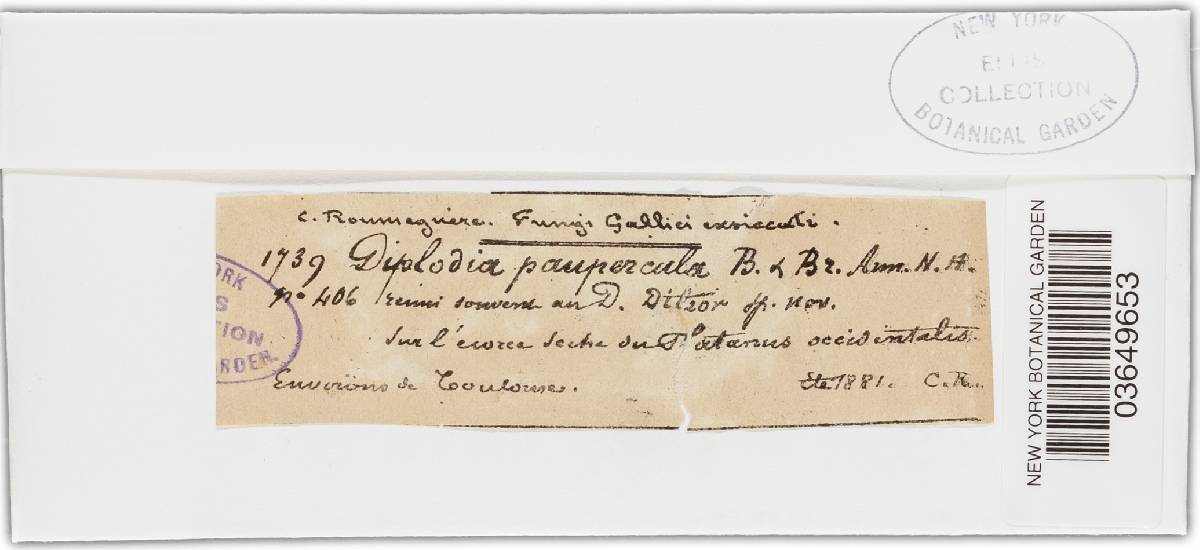 NEW YORK
ELLIS
COLLECTION
BOTANICAL GARDEN
C. Roumeguère. Fungi Gallici exsiccati.
1739 Diplodia paupercula B. & Br. Ann. N. H.
No 406 réuni souvent au D. Ditior sp. nov.
sur l'écorce sèche du Platanus occidentalis.
Environs de Toulouse. Été 1881. C. R.
ORK
S
TION
RDEN.
NEW YORK BOTANICAL GARDEN
03649653